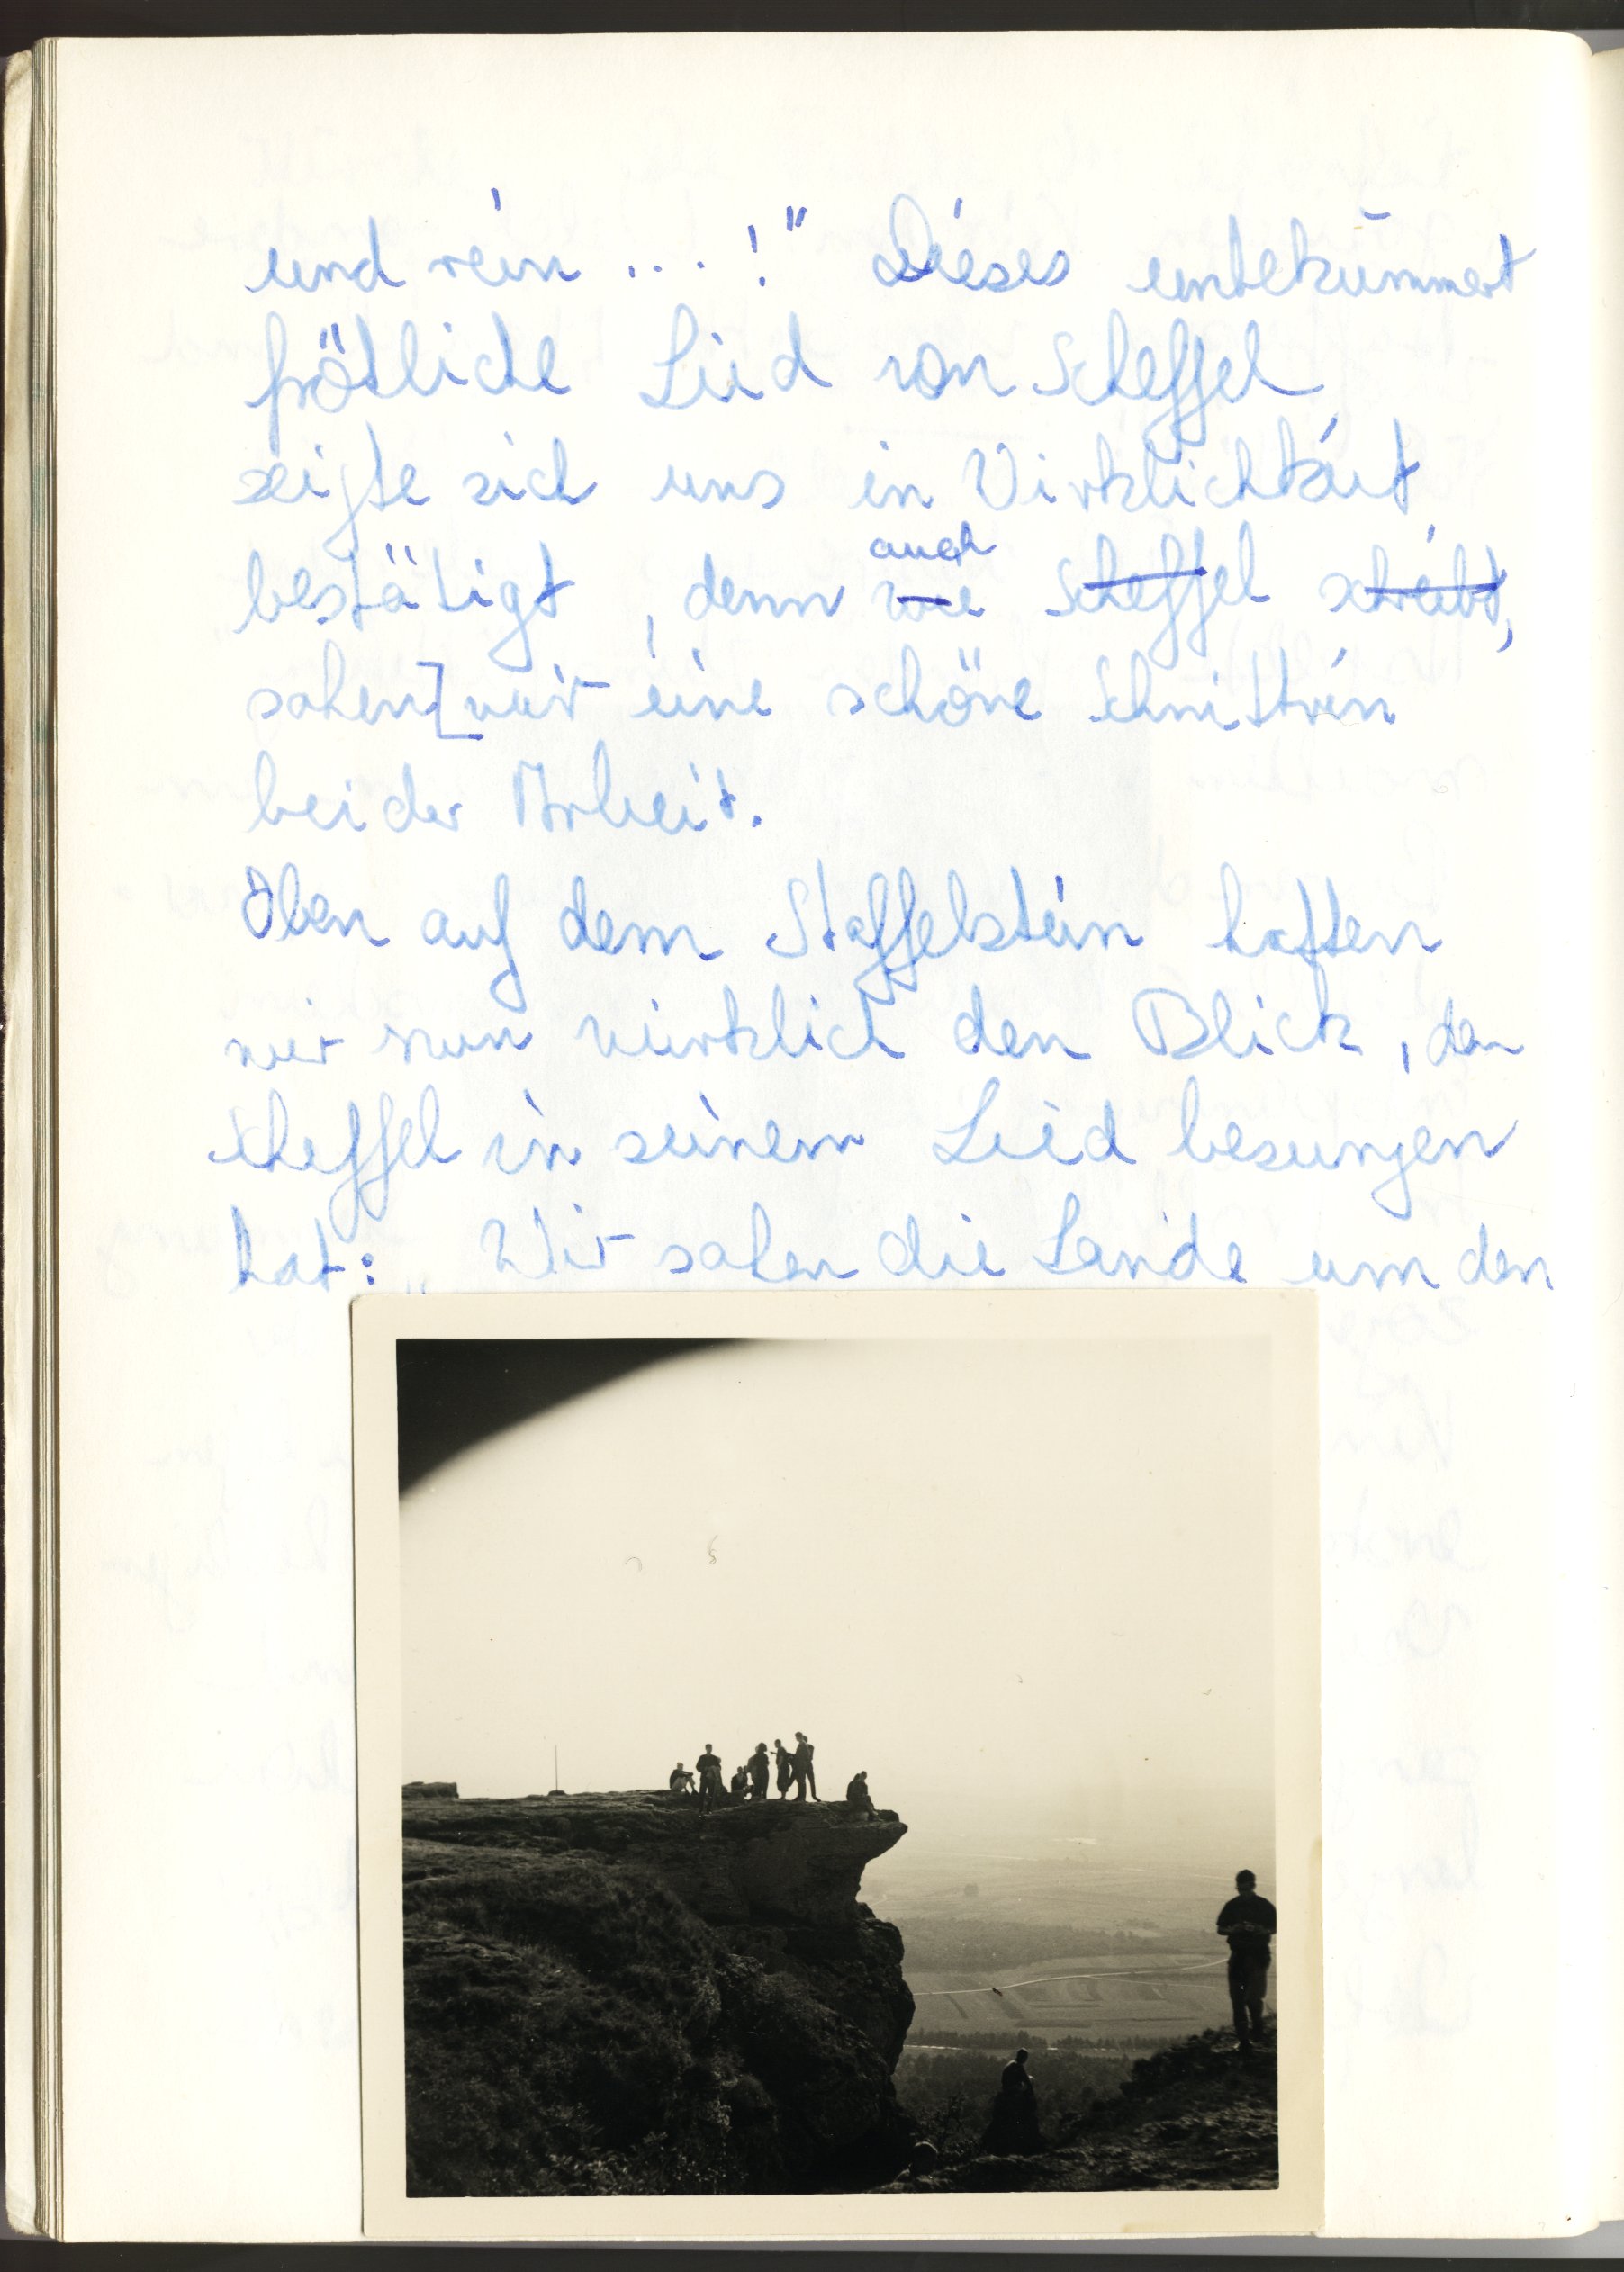 und rein ...!" Dieses unbekümmert
fröhliche Lied von Scheffel
zeigte sich uns in Wirklichkeit
auch
bestätigt, denn wie Scheffel schreibt,
sahen [wir eine schöne Schnittrin
bei der Arbeit.
Oben auf dem Staffelstein hatten
wir nun wirklich den Blick, den
Scheffel in seinem Lied besungen
hat: „Wir sahen die Lande um den